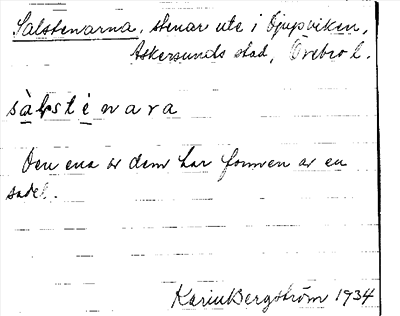 Salstenarna, stenar ute i Djupviken,
Askersunds stad, Örebro l.
sàlstènara
Den ena av dem har formen av en
sadel.
Karin Bergström 1934